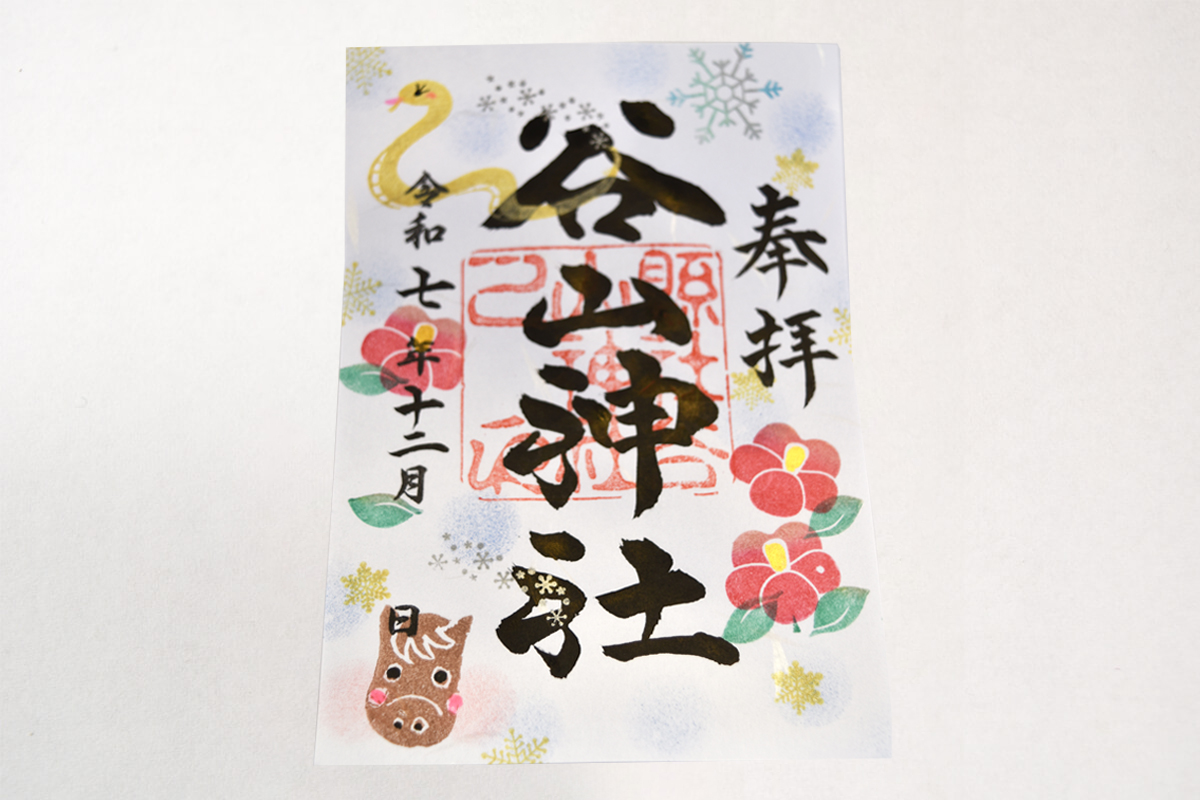 奉拝
谷山神社
令和七年十二月 日